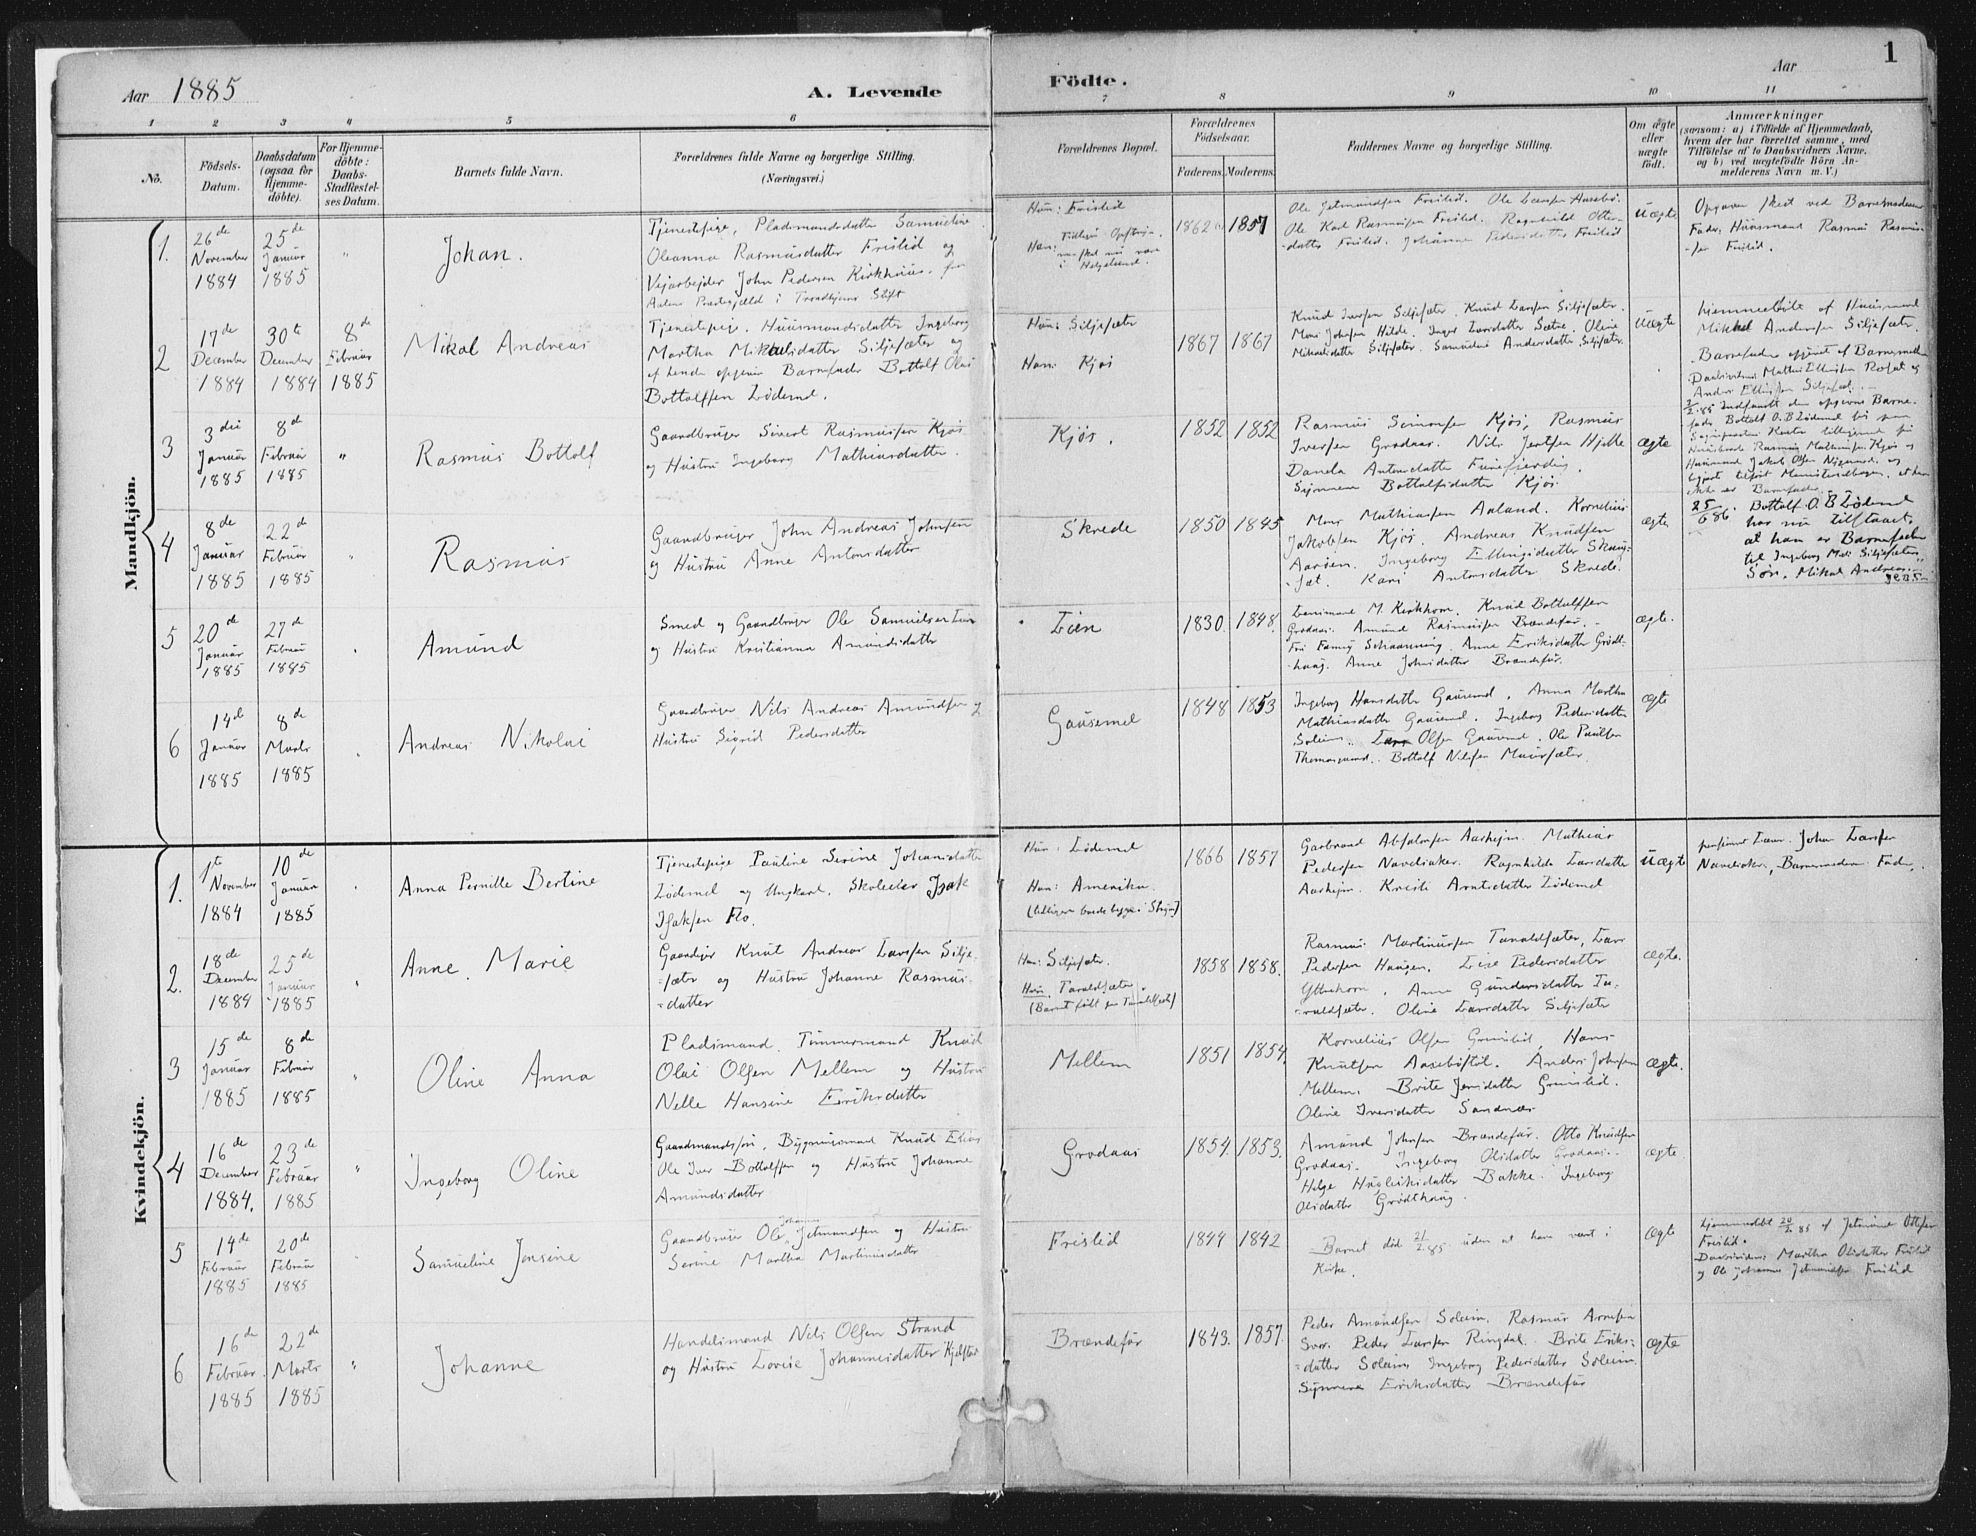 Aar 1885
A. Levende
Födte.
Aar
1
1 2 3 4 5 6 7 8 9 10 11
No.
Födsels-
Datum.
Daabsdatum
(ogsaa for
Hjemme-
döbte).
For Hjemme-
döbte:
Daabs-
Stadfæstel-
ses Datum.
Barnets fulde Navn.
Forældrenes fulde Navne og borgerlige Stilling.
(Næringsvei.)
Forældrenes Bopæl.
Forældrenes
Födselsaar.
Faderens. Moderens.
Faddernes Navne og borgerlige Stilling.
Om ægte
eller
uægte
födt.
Anmærkninger
(saasom: a) i Tilfælde af Hjemmedaab,
hvem der har forrettet samme, med
Tilföielse af to Daabsvidners Navne,
og b) ved uægtefödte Börn An-
melderens Navn m. V.)
Mandkjön.
1.
26de
November
1884
25de
Januar
1885
"
Johan.
Tjenestepige, Pladsmandsdatter Samueline
Oleanna Rasmusdatter Frislid og
Vejarbejder John Pedersen Kirkhuus, fra
Præstegjæld i Trondhjems Stift
Hun: Frislid
Han:
i Helgeland.
1862 1857
Ole Jetmundsen Frislid. Ole Larsen
Ole Karl Rasmusen Frislid. Ragnhild Otters-
datter Frislid. Johanne Pedersdatter Frislid
Uægte
Opgaven skeet ved Barnemoderens
Fader, Huusmand Rasmus Rasmus-
sen Frislid.
2
17de
December
1884
30te
December
1884
8de
Februar
1885
Mikal Andreas
Tjenestepige, Huusmandsdatter Ingeborg
Martha Mikalsdatter Siljesæter og
af hende opgiven Barnefader Bottolf Olai
Bottolfsen Lødemel.
Hun: Siljesæter
Han: Kjøs
1867 1867
Knud Iversen Siljesæter. Knud Larsen Siljesæter.
Mons Johnsen Hilde. Inger Larsdatter Sætre. Oline
Mikaelsdatter Siljesæter. Samueline Andersdatter Siljesæter.
Uægte
hjemmedøbte af Huusmand
Mikkel Andersen Siljesæter.
Barnefader opgivet af Barnemoderen
Daabsvidner: Mathias Ellingsen Roset og
Anders Ellingsen Siljesæt.
2/2.85 Indfandt den opgivne Barne-
fader Bottolf O. B. Lødemel
Rasmus Mathiassen Kjøs og
Huusmand Jakob Olsen
Ministerialbogen, at han
ikke er Barnefader.
25/6 86. Bottolf O. B. Lødemel
har nu tilstaaet,
at han er Barnefader
til Ingeborg Mar. Siljesæters
Søn, Mikal Andreas.
3
3die
Januar
1885
8de
Februar
1885
"
Rasmus Bottolf
Gaardbruger Sivert Rasmussen Kjøs
og Hustru Ingeborg Mathiasdatter.
Kjøs.
1852 1852
Rasmus Simonsen Kjøs, Rasmus
Iversen Grodaas. Nils Jentsen Hjelle
Danela Antonsdatter
Synneva Bottolfsdatter Kjøs.
ægte
4
8de
Januar
1885
22de
Februar
1885
"
Rasmus
Gaardbruger John Andreas Johnsen
og Hustru Anne Antonsdatter
Skrede
1850 1845
Mons Mathiassen Aaland. Kornelius
Jakobsen Kjøs. Andreas Knudsen
Aarsen. Ingeborg Ellingsdatter
Kari Antonsdatter Skrede.
ægte
5
20de
Januar
1885
27de
Februar
1885
"
Amund
Smed og Gaardbruger Ole Samuelsen Lien
og Hustru Kristianna Amundsdatter
Lien
1830 1848.
Lensmand M. Kirkhorn. Knud Bottolfsen
Grodaas. Amund Rasmussen Brændefur.
Fru Fanny Schaanning. Anne Eriksdatter Grodt-
haug. Anne Johnsdatter Brændefur.
ægte.
6
14de
Januar
1885
8de
Marts
1885
"
Andreas Nikolai
Gaardbruger Nils Andreas Amundsen og
Hustru Sigrid Pedersdatter
Gausemel
1848 1853
Ingeborg Hansdatter Gausemel. Anna Martha
Mathiasdatter Gausemel. Ingeborg Pedersdatter
Soleim. Lars Olsen Gausemel. Ole Paulsen
Thomasgaard. Bottolf Nilsen Muursæter.
ægte
Kvindekjön.
1.
1te
November
1884
10de
Januar
1885
"
Anna Pernille Bertine
Tjenestepige Pauline Serine Johansdatter
Lødemel og Ungkarl, Skolelærer Isak
Isaksen Flo.
Hun: Lødemel
Han: Amerika.
(tidligere i Stryn)
1866 1857
Garbrand Absalonsen Aarhejm. Mathias
Pedersen Navelsaker. Ragnhilde Larsdatter
Aarhejm. Kristi Arntsdatter Lødemel
Uægte
John Larsen
Navelsaker, Barnemoderens Fader.
2.
18de
December
1884
25de
Januar
1885
"
Anne Marie
Gaardejer Knut Andreas Larssen Silje-
sæter og Hustru Johanne Rasmus-
datter
Han: Siljesæter.
Hun: Taraldsæter.
(Barnet født paa Taraldsæt)
1858 1858.
Rasmus Martinussen Taraldsæter, Lars
Pedersen Haugen. Lise Pedersdatter
Yttrehorn. Anne Gundersdatter Ta-
raldsæter. Oline Larsdatter Siljesæter
ægte.
3
15de
Januar
1885
8de
Februar
1885
"
Oline Anna
Pladsmand, Timmermand Knud
Olai Olsen Mellem og Hustru
Nelle Hansine Eriksdatter
Mellem
1851 1854.
Kornelius Olsen Grinilid, Hans
Knutsen Aasebøstøl. Anders Johnsen
Mellem. Brite Jensdatter Grinilid.
Oline Iversdatter Sandnes
ægte.
4
16de
December
1884.
23de
Februar
1885
"
Ingeborg Oline
Gaardmandssøn, Bygningsmand Knud Elias
Ole Iver Bottolfsen og Hustru Johanne
Amundsdatter
Grodaas
1854. 1853.
Amund Johnsen Brændefur. Otto Knudsen
Grodaas. Ingeborg Olsdatter Grodaas.
Helge Husleiksdatter Bakke. Ingeborg
Olsdatter Grodthaug.
ægte
5
14de
Februar
1885
20de
Februar
1885
Samueline Jensine
Gaardbruger Ole Johannes Jetmundsen og Hustru
Serine Martha Martinusdatter
Frislid
1844 1842
Barnet død 21/2 85 uden at have været i
Kirke.
ægte
hjemmedøbt 20/2 85 af Jetmund Ottesen
Frislid.
Daabsvidner: Martha Olsdatter Frislid
og Ole Johannes Jetmundsen Frislid
6
16de
Februar
1885
22de
Marts
1885
"
Johanne
Handelsmand Nils Olsen Strand
og Hustru Lovise Johannesdatter Kjelstad
Brændefur
1843. 1857.
Peder Amundsen Soleim. Rasmus Arnesen
Svor. Peder Larsen Ringdal. Brite Eriks-
datter Soleim, Ingeborg Pedersdatter Soleim.
Synneva Eriksdatter Brændefur
ægte